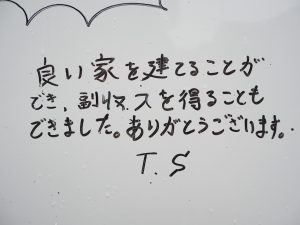 良い家を建てることが
でき、副収入を得ることも
できました。ありがとうございます。
T.S